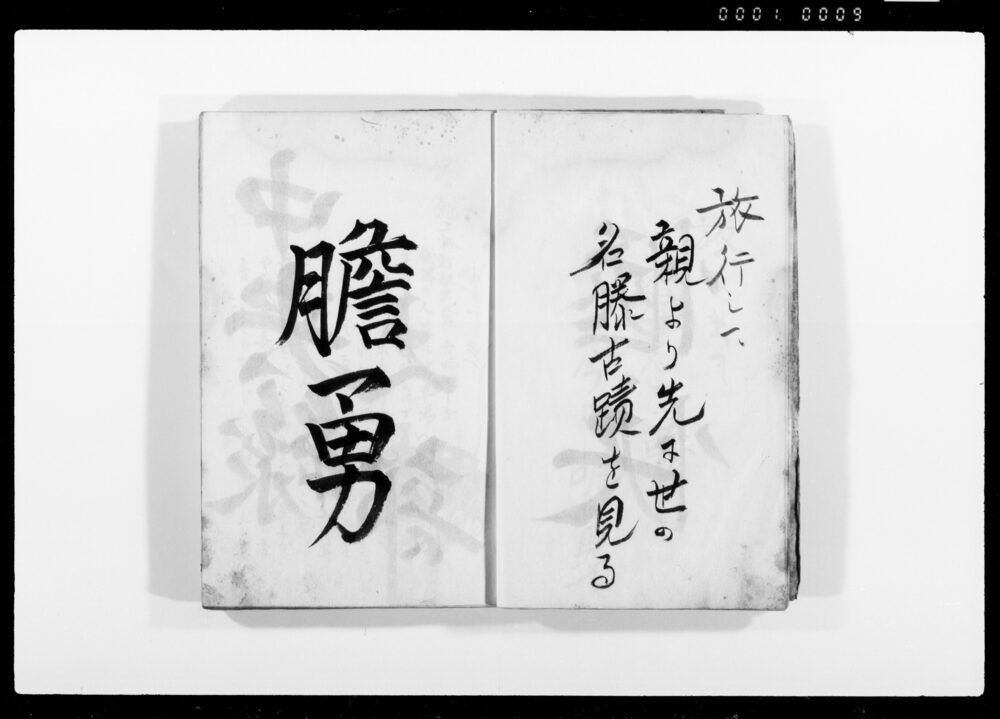 0001. 0009
旅行して、
親より先に世の
名勝古蹟を見る
膽勇